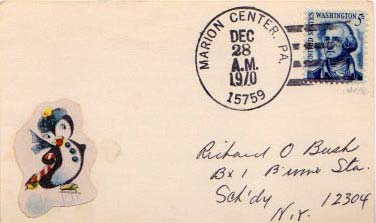 MARION CENTER, PA.
DEC
28
A.M.
1970
15759
WASHINGTON 5¢
UNITED STATES
Richard O Bush
Bx 1 B'wne Sta.
Sch'dy 12304
N.Y.